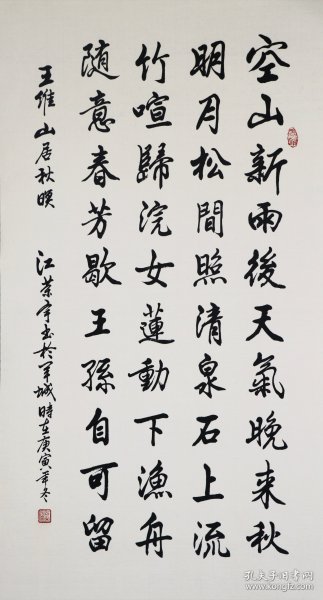 空山新雨後天氣晚来秋
明月松間照清泉石上流
竹喧歸浣女蓮動下漁舟
随意春芳歇王孫自可留
王維山居秋暝
江荣宇书於羊城時在庚寅年冬
孔夫子旧书网